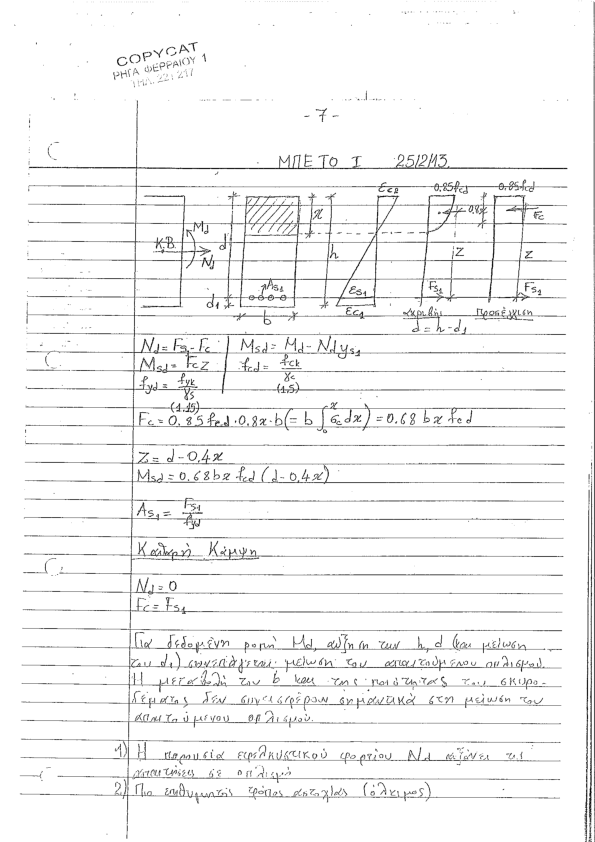 COPYCAT
ΡΗΓΑ ΦΕΡΡΑΙΟΥ 1
ΤΗΛ. 221 217
- 7 -
ΜΠΕΤΟ Ι 25/2/13.
εc2 0.85fcd 0.85fcd
x 0.8x Fc
Κ.Β. Md Nd d h z z
As1 εs1 Fs1 Fs1
d1 b εc1 ακριβής προσέγγιση
d = h - d1
Nd = Fs1 - Fc | Msd = Md - Nd ys1
Msd = Fc z | fcd = fck/γc (1.5)
fyd = fyk/γs (1.15)
Fc = 0.85fcd · 0.8x · b (= b ∫₀ˣ σc dx) = 0.68 bx fcd
z = d - 0.4x
Msd = 0.68bx fcd (d - 0.4x)
As1 = Fs1/fyd
Καθαρή Κάμψη
Nd = 0
Fc = Fs1
Για δεδομένη ροπή Md, αύξηση των h, d (και μείωση
του d1) συνεπάγεται μείωση του απαιτούμενου οπλισμού.
Η μεταβολή του b και της ποιότητας του σκυρο-
δέματος δεν συνεισφέρουν σημαντικά στη μείωση του
απαιτούμενου οπλισμού.
1) Η παρουσία εφελκυστικού φορτίου Nd αυξάνει τις
απαιτήσεις σε οπλισμό
2) Πιο επιθυμητός τρόπος αστοχίας (όλκιμος)